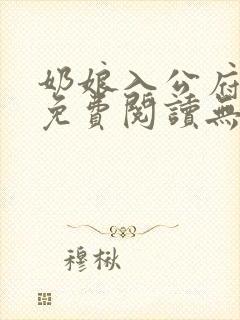 奶娘入公府
免費閱讀無
穆楸